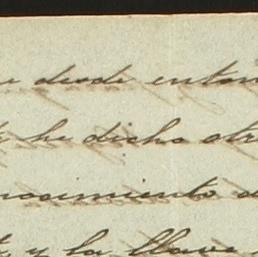 e desde enton
he dicho otr
ncamiento d
y la llave